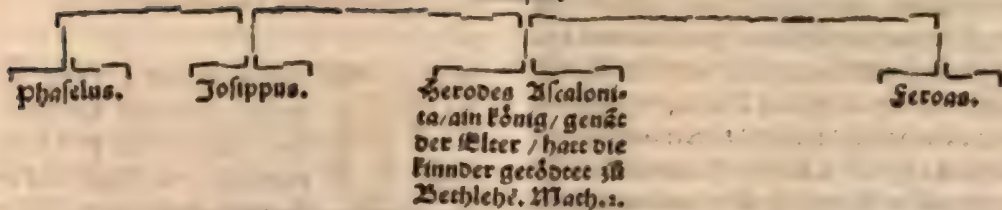 Phaselus.
Josippus.
Herodes Ascaloni-
ta/ain künig/genāt
der Elter/hatt die
kinnder getödtet zů
Bethlehē. Math.2.
Feroas.